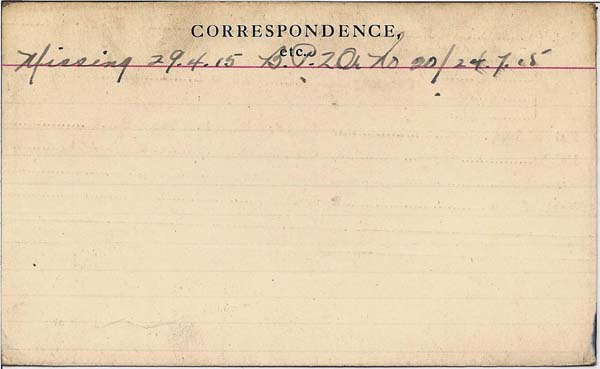 CORRESPONDENCE,
etc.
Missing 29.4.15 B.P. 2 Or No 20/24.7.15